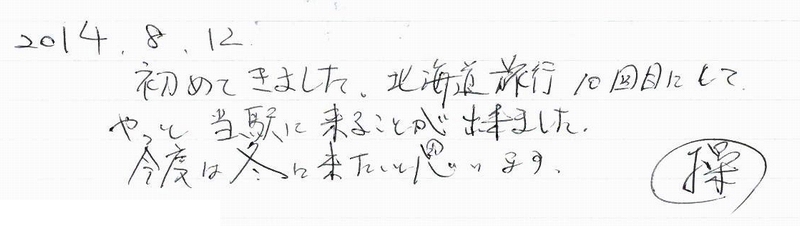 2014.8.12
初めてきました。北海道旅行10回目にして
やっと当駅に来ることが出来ました。
今度は冬に来たいと思います。
操